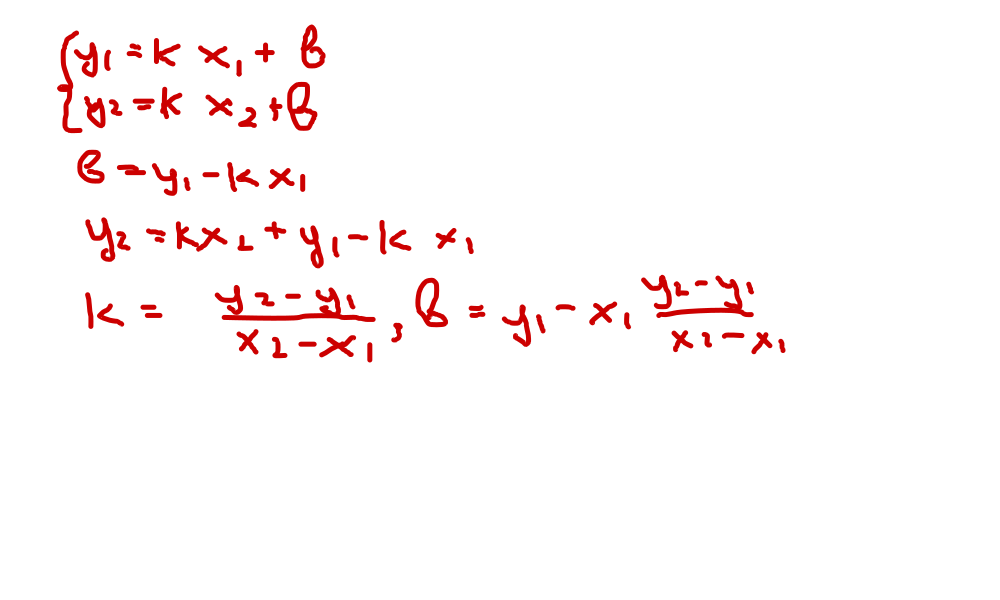 { y₁ = k x₁ + в
{ y₂ = k x₂ + в
в = y₁ - k x₁
y₂ = kx₂ + y₁ - k x₁
k = (y₂ - y₁)/(x₂ - x₁), в = y₁ - x₁ (y₂ - y₁)/(x₂ - x₁)